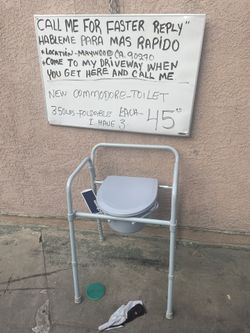 CALL ME FOR FASTER REPLY"
HABLEME PARA MAS RAPIDO
• LOCATION - MAYWOOD CA. 90270
• COME TO MY DRIVEWAY WHEN
YOU GET HERE AND CALL ME
NEW COMMODORE-TOILET
350LBS-FOLDABLE EACH- 45
I HAVE 3